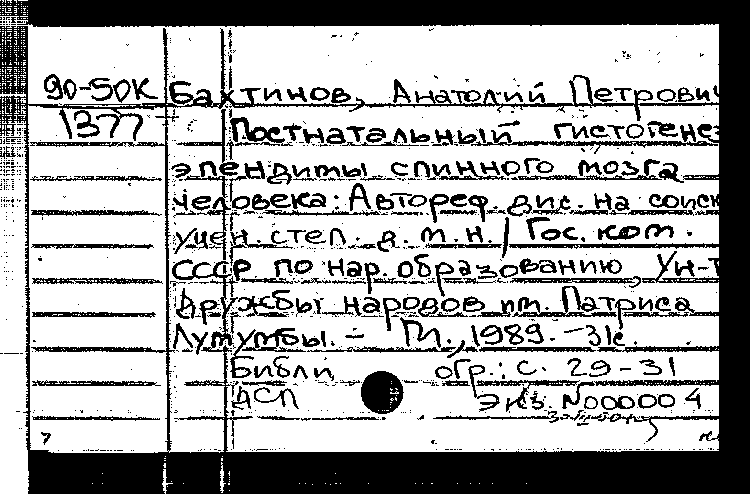 90-5DK Бахтинов, Анатолий Петрович
1377 Постнатальный гистогенез
эпендимы спинного мозга
человека: Автореф. дис. на соиск
учен. степ. д. м. н. / Гос. ком.
СССР по нар. образованию, Ун-т
дружбы народов им. Патриса
Лумумбы. - М., 1989. - 31с.
Библиогр.: с. 29-31
ДСП экз. N000004
7